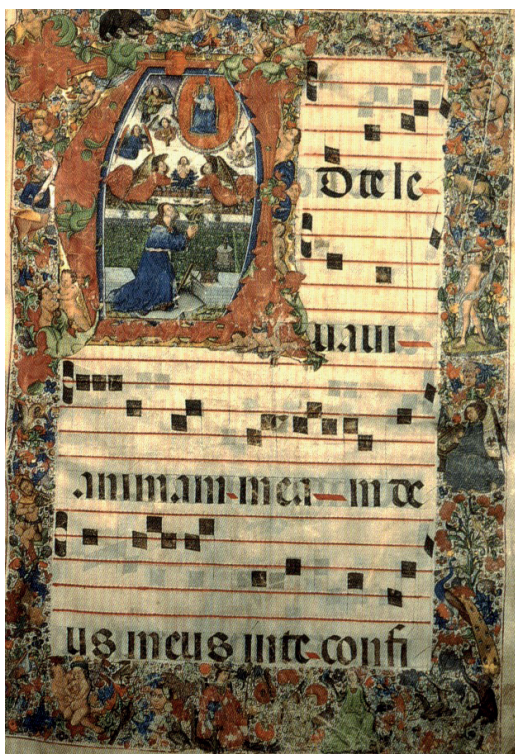 D te le-
uaui-
animam-mea-m de
us meus in te-confi